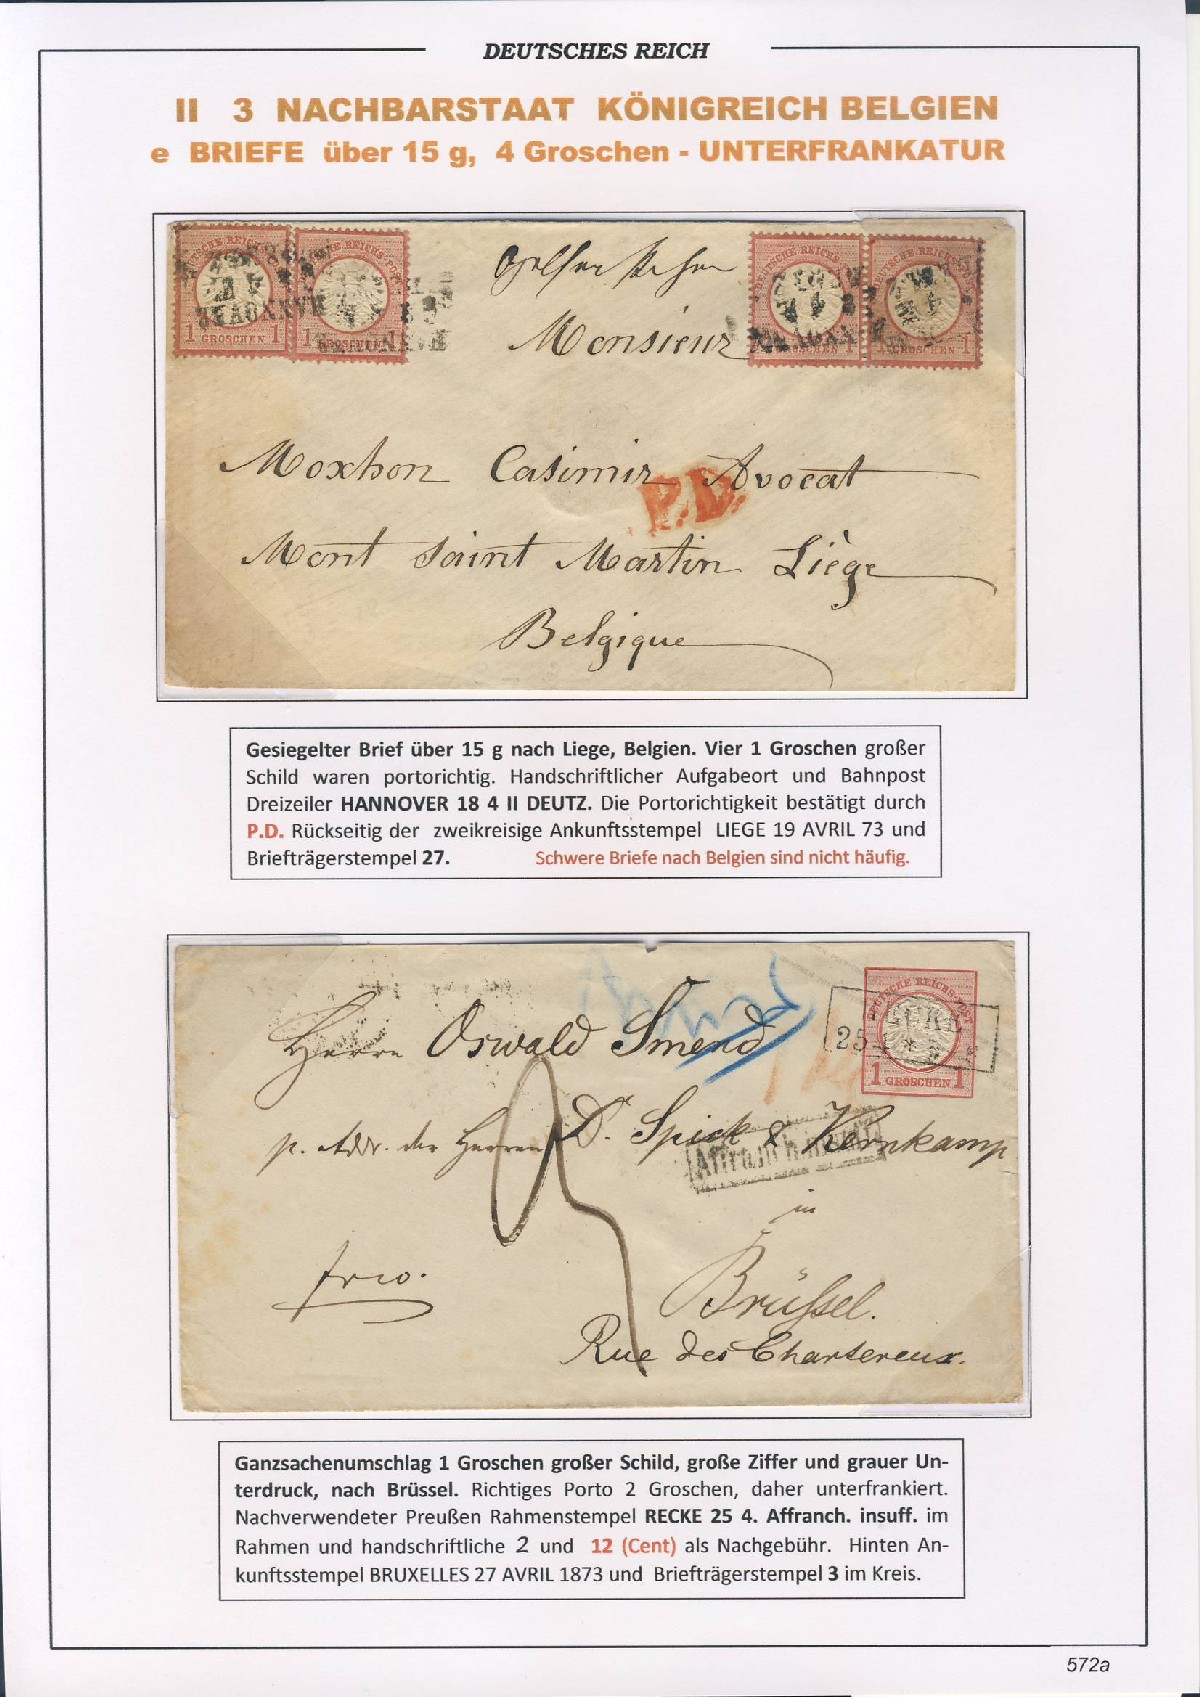 DEUTSCHES REICH
II 3 NACHBARSTAAT KÖNIGREICH BELGIEN
e BRIEFE über 15 g, 4 Groschen - UNTERFRANKATUR
DEUTSCHE REICHS-POST
1 GROSCHEN 1
HANNOVER
Monsieur
Moxhon Casimir Avocat
P.D.
Mont Saint Martin Liège
Belgique
Gesiegelter Brief über 15 g nach Liege, Belgien. Vier 1 Groschen großer
Schild waren portorichtig. Handschriftlicher Aufgabeort und Bahnpost
Dreizeiler HANNOVER 18 4 II DEUTZ. Die Portorichtigkeit bestätigt durch
P.D. Rückseitig der zweikreisige Ankunftsstempel LIEGE 19 AVRIL 73 und
Briefträgerstempel 27. Schwere Briefe nach Belgien sind nicht häufig.
DEUTSCHE REICHS-POST
1 GROSCHEN 1
25
Herrn Oswald Smend
p. Adr. der Herren D. Spick & Kernkamp
Affranch. insuff.
in
Brüssel.
frco.
Rue des Chartereux.
2
Ganzsachenumschlag 1 Groschen großer Schild, große Ziffer und grauer Un-
terdruck, nach Brüssel. Richtiges Porto 2 Groschen, daher unterfrankiert.
Nachverwendeter Preußen Rahmenstempel RECKE 25 4. Affranch. insuff. im
Rahmen und handschriftliche 2 und 12 (Cent) als Nachgebühr. Hinten An-
kunftsstempel BRUXELLES 27 AVRIL 1873 und Briefträgerstempel 3 im Kreis.
572a